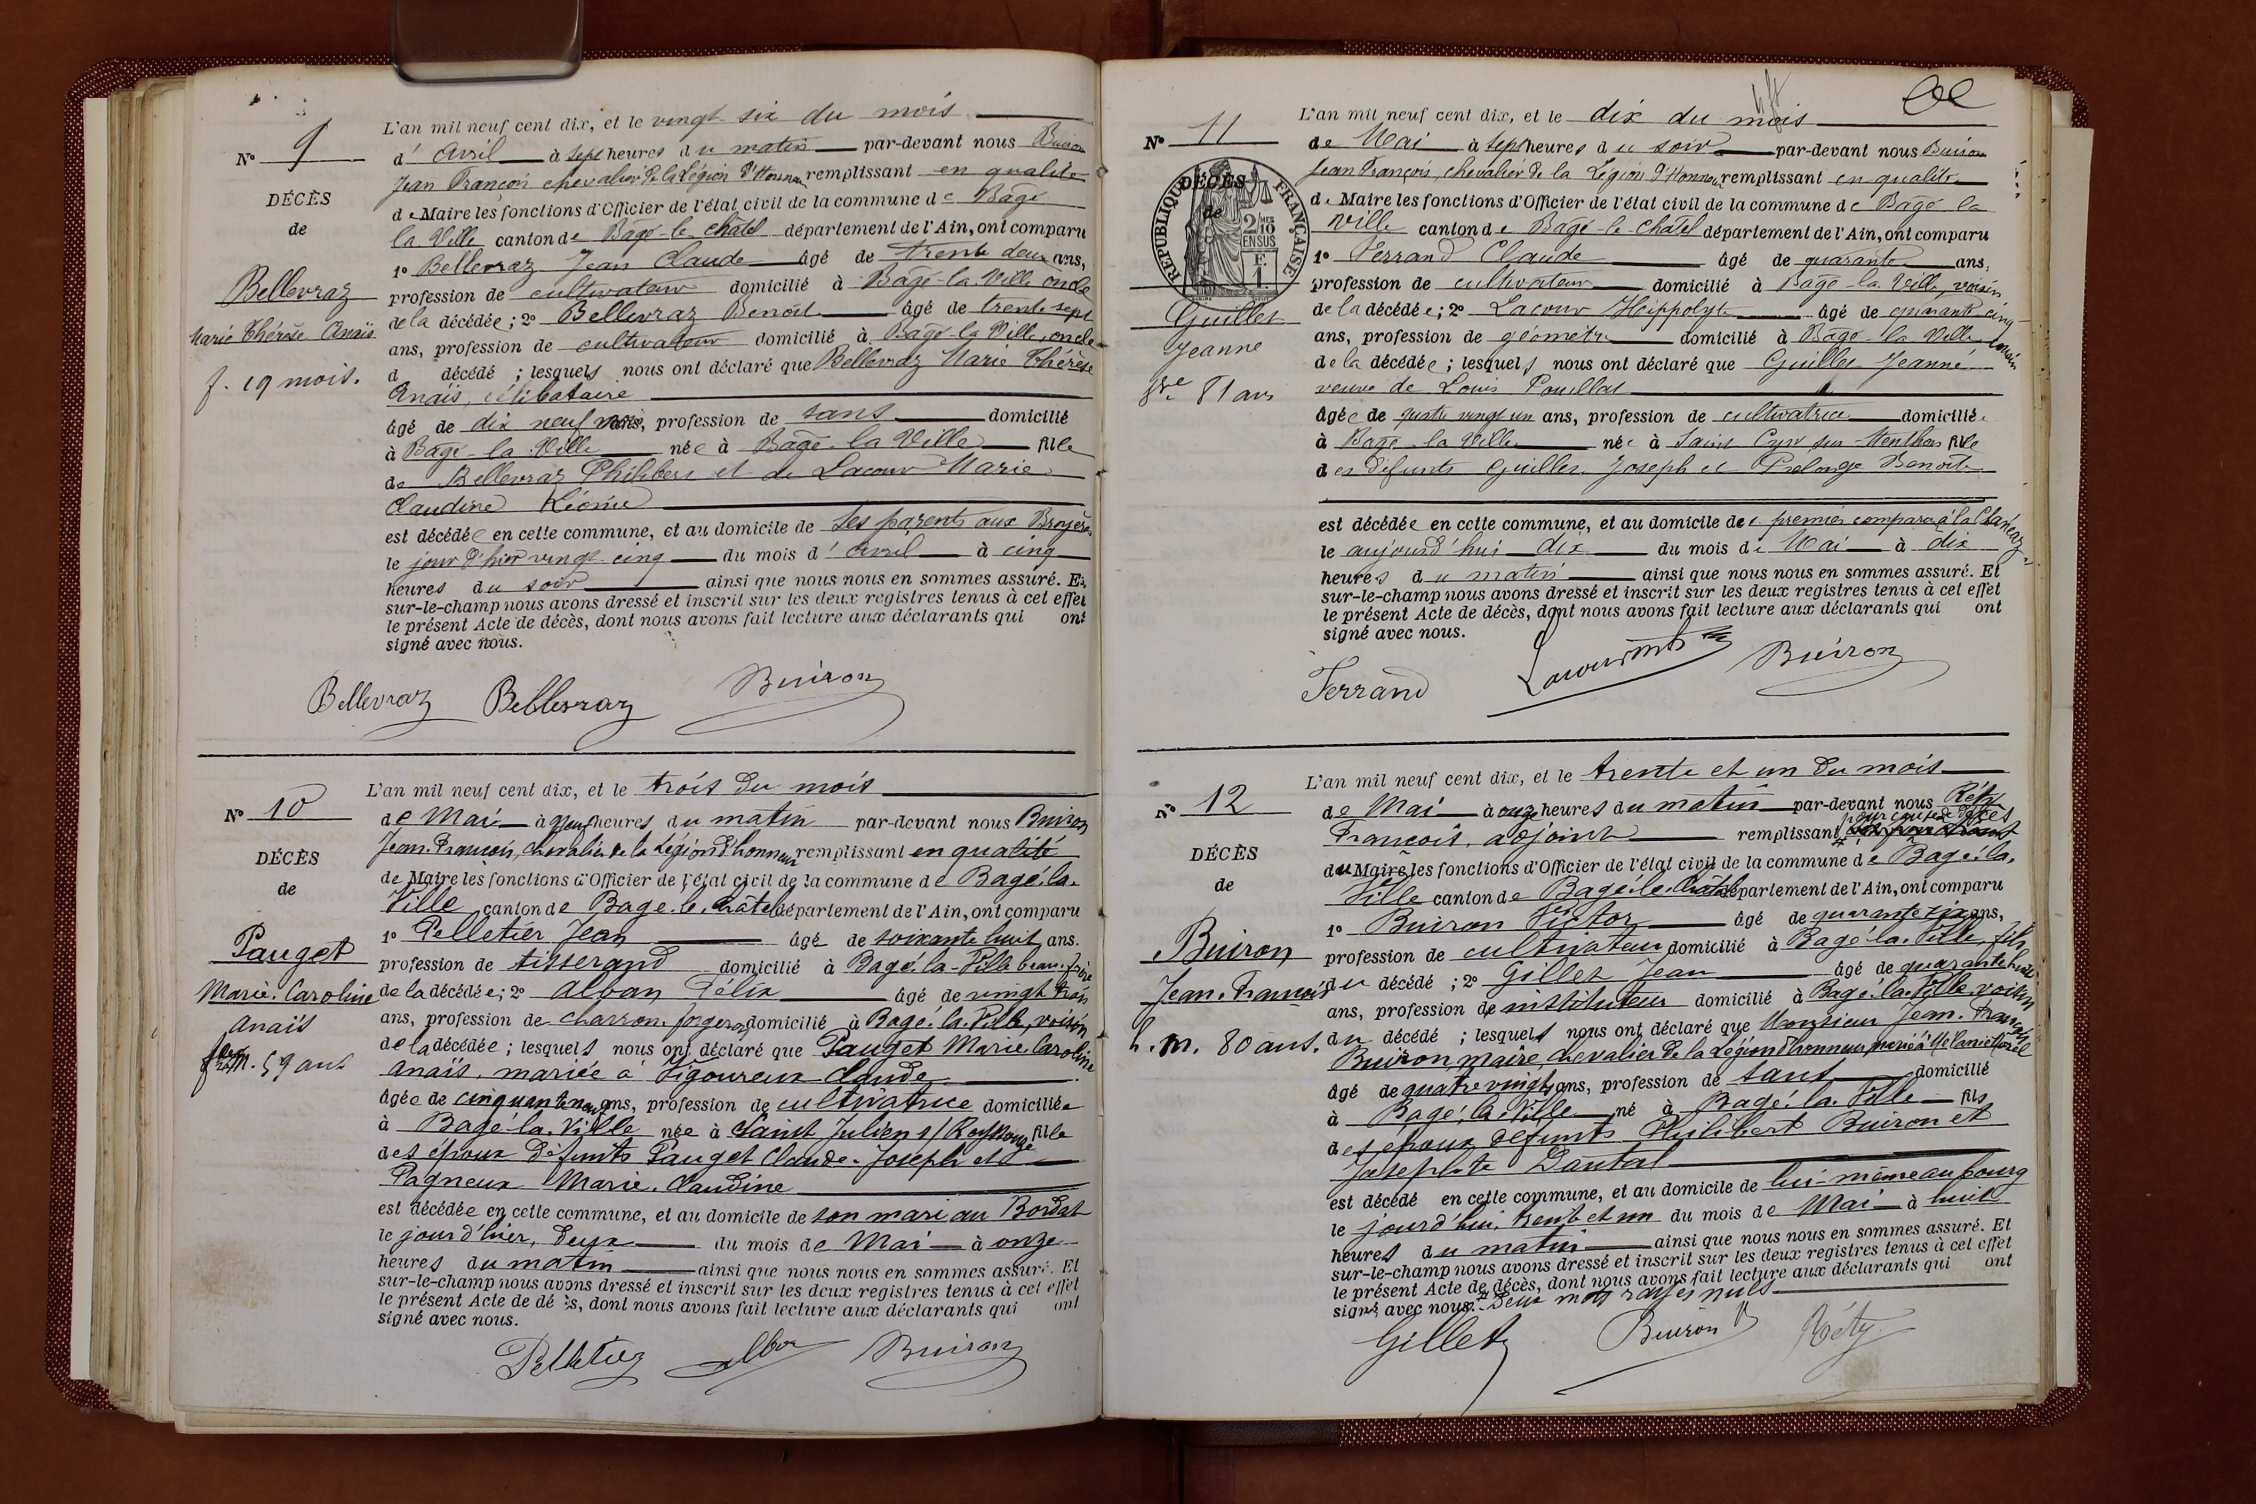 N° 9
DÉCÈS
de
Bellevraz
Marie Thérèse Anaïs
f. 19 mois.
L'an mil neuf cent dix, et le vingt six du mois
d' Avril à sept heures du matin par-devant nous Buiron
Jean François chevalier de la Légion d'Honneur remplissant en qualité
de Maire les fonctions d'Officier de l'état civil de la commune de Bagé
la Ville canton de Bagé-le-Châtel département de l'Ain, ont comparu
1° Bellevraz Jean Claude âgé de trente deux ans,
profession de cultivateur domicilié à Bagé-la-Ville oncle
de la décédée ; 2° Bellevraz Benoit âgé de trente sept
ans, profession de cultivateur domicilié à Bagé-la-Ville, oncle
d décédé ; lesquels nous ont déclaré que Bellevraz Marie Thérèse
Anaïs, célibataire
âgé de dix neuf mois, profession de sans domicilié
à Bagé-la-Ville née à Bagé-la-Ville fille
de Bellevraz Philibert et de Lacour Marie
Claudine Léonie
est décédée en cette commune, et au domicile de ses parents aux Broyères
le jour d'hier vingt cinq du mois d' Avril à cinq
heures du soir ainsi que nous nous en sommes assuré. Et
sur-le-champ nous avons dressé et inscrit sur les deux registres tenus à cet effet
le présent Acte de décès, dont nous avons fait lecture aux déclarants qui ont
signé avec nous.
Bellevraz Bellevraz Buiron
N° 10
DÉCÈS
de
Pauget
Marie-Caroline
Anaïs
59 ans
L'an mil neuf cent dix, et le trois du mois
de Mai à neuf heures du matin par-devant nous Buiron
Jean-François, chevalier de la Légion d'honneur remplissant en qualité
de Maire les fonctions d'Officier de l'état civil de la commune de Bagé-la-
Ville canton de Bagé-le-Châtel département de l'Ain, ont comparu
1° Pelletier Jean âgé de soixante huit ans.
profession de tisserand domicilié à Bagé-la-Ville beau-frère
de la décédée; 2° Alban Félix âgé de vingt trois
ans, profession de charron-forgeron domicilié à Bagé-la-Ville, voisin
de la décédée ; lesquels nous ont déclaré que Pauget Marie-Caroline
Anaïs, mariée à Vigoureux Claude
âgée de cinquante neuf ans, profession de cultivatrice domiciliée
à Bagé-la-Ville née à Saint Julien s/ Reyssouze fille
des époux défunts Pauget Claude-Joseph et
Pagneux Marie-Claudine
est décédée en cette commune, et au domicile de son mari au Bordat
le jour d'hier, deux du mois de Mai à onze
heures du matin ainsi que nous nous en sommes assuré. Et
sur-le-champ nous avons dressé et inscrit sur les deux registres tenus à cet effet
le présent Acte de décès, dont nous avons fait lecture aux déclarants qui ont
signé avec nous.
Pelletier Alban Buiron
N° 11
DÉCÈS
de
RÉPUBLIQUE FRANÇAISE
2/10 EN SUS
F. 1.
Guillet
Jeanne
Vve 81 ans
L'an mil neuf cent dix, et le dix du mois
de Mai à sept heures du soir par-devant nous Buiron
Jean François, chevalier de la Légion d'Honneur remplissant en qualité
de Maire les fonctions d'Officier de l'état civil de la commune de Bagé la
Ville canton de Bagé-le-Châtel département de l'Ain, ont comparu
1° Ferrand Claude âgé de quarante ans,
profession de cultivateur domicilié à Bagé-la-Ville, voisin
de la décédée ; 2° Lacour Hippolyte âgé de quarante cinq
ans, profession de géomètre domicilié à Bagé-la-Ville voisin
de la décédée ; lesquels nous ont déclaré que Guillet Jeanne
veuve de Louis Pouillat
âgée de quatre vingt un ans, profession de cultivatrice domiciliée
à Bagé-la-Ville née à Saint Cyr sur Menthon fille
des défunts Guillet Joseph et Prelonge Benoite
est décédée en cette commune, et au domicile de premier comparant à la
le aujourd'hui dix du mois de Mai à dix
heures du matin ainsi que nous nous en sommes assuré. Et
sur-le-champ nous avons dressé et inscrit sur les deux registres tenus à cet effet
le présent Acte de décès, dont nous avons fait lecture aux déclarants qui ont
signé avec nous.
Ferrand Buiron
N° 12
DÉCÈS
de
Buiron
Jean-François
h. m. 80 ans.
L'an mil neuf cent dix, et le trente et un du mois
de Mai à onze heures du matin par-devant nous Réty
François, adjoint remplissant pour cause de décès
du Maire les fonctions d'Officier de l'état civil de la commune de Bagé-la-
Ville canton de Bagé-le-Châtel département de l'Ain, ont comparu
1° Buiron Victor âgé de quarante six ans,
profession de cultivateur domicilié à Bagé-la-Ville, fils
du décédé ; 2° Gillet Jean âgé de quarante huit
ans, profession de instituteur domicilié à Bagé-la-Ville voisin
du décédé ; lesquels nous ont déclaré que Monsieur Jean-François
Buiron, maire, chevalier de la Légion d'honneur, marié à Mélanie Morel
âgé de quatre vingts ans, profession de sans domicilié
à Bagé-la-Ville né à Bagé-la-Ville fils
des époux défunts Philibert Buiron et
Josephte Dantal
est décédé en cette commune, et au domicile de lui-même au bourg
le jourd'hui, trente et un du mois de Mai à huit
heures du matin ainsi que nous nous en sommes assuré. Et
sur-le-champ nous avons dressé et inscrit sur les deux registres tenus à cet effet
le présent Acte de décès, dont nous avons fait lecture aux déclarants qui ont
signé avec nous. Deux mots rayés nuls
Gillet Buiron V Réty